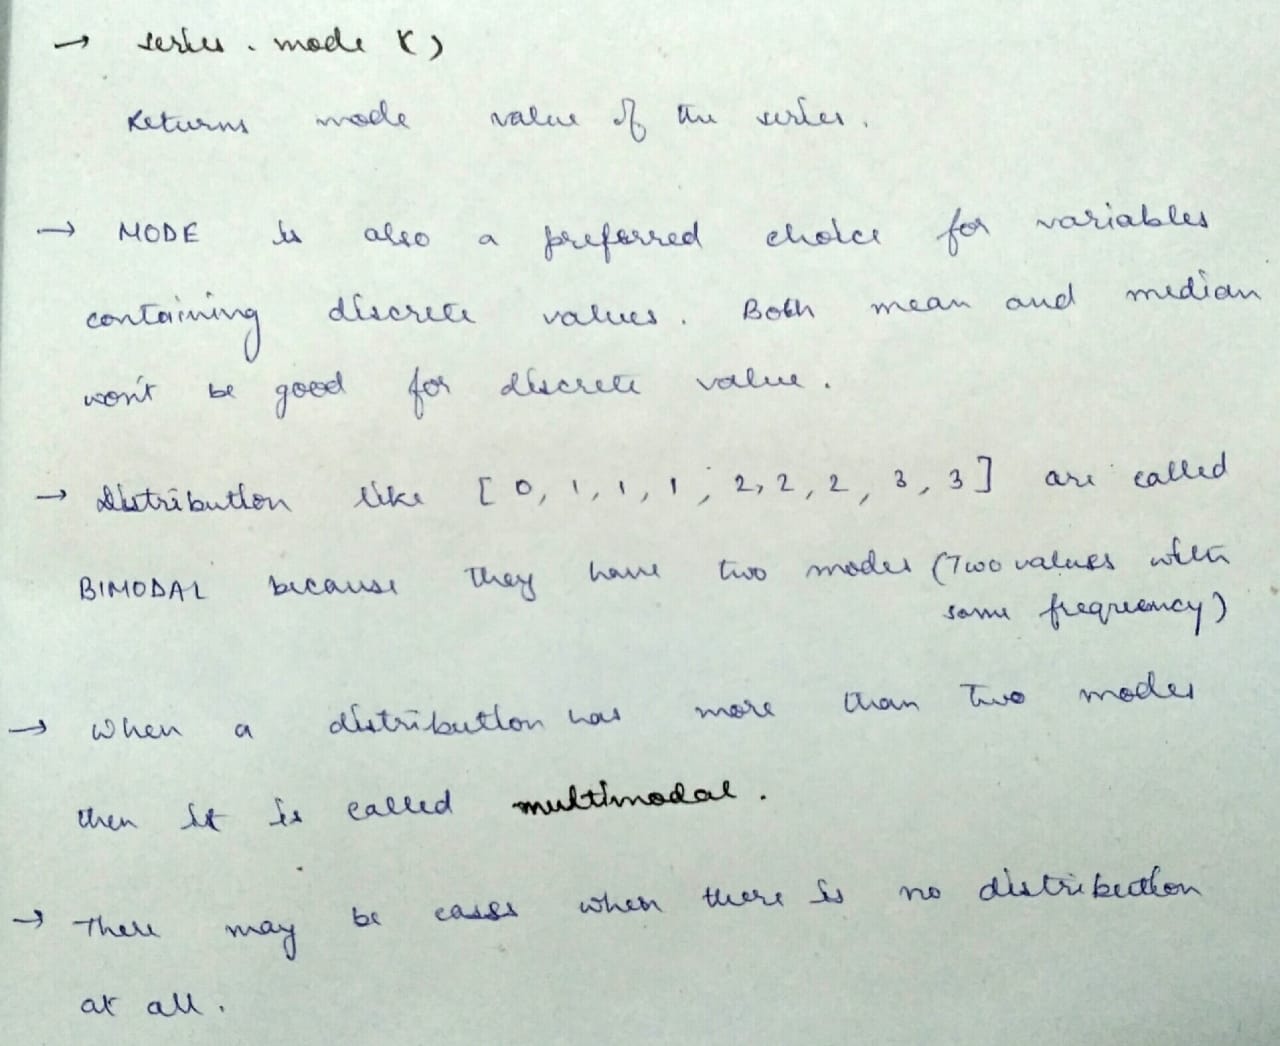 → series . mode ( )
Returns mode value of the series .
→ MODE is also a preferred choice for variables
containing discrete values . Both mean and median
won't be good for discrete value .
→ distribution like [ 0, 1, 1, 1, 2, 2, 2, 3, 3 ] are called
BIMODAL because they have two modes (Two values with
same frequency)
→ When a distribution has more than two modes
then it is called multimodal .
→ There may be cases when there is no distribution
at all .